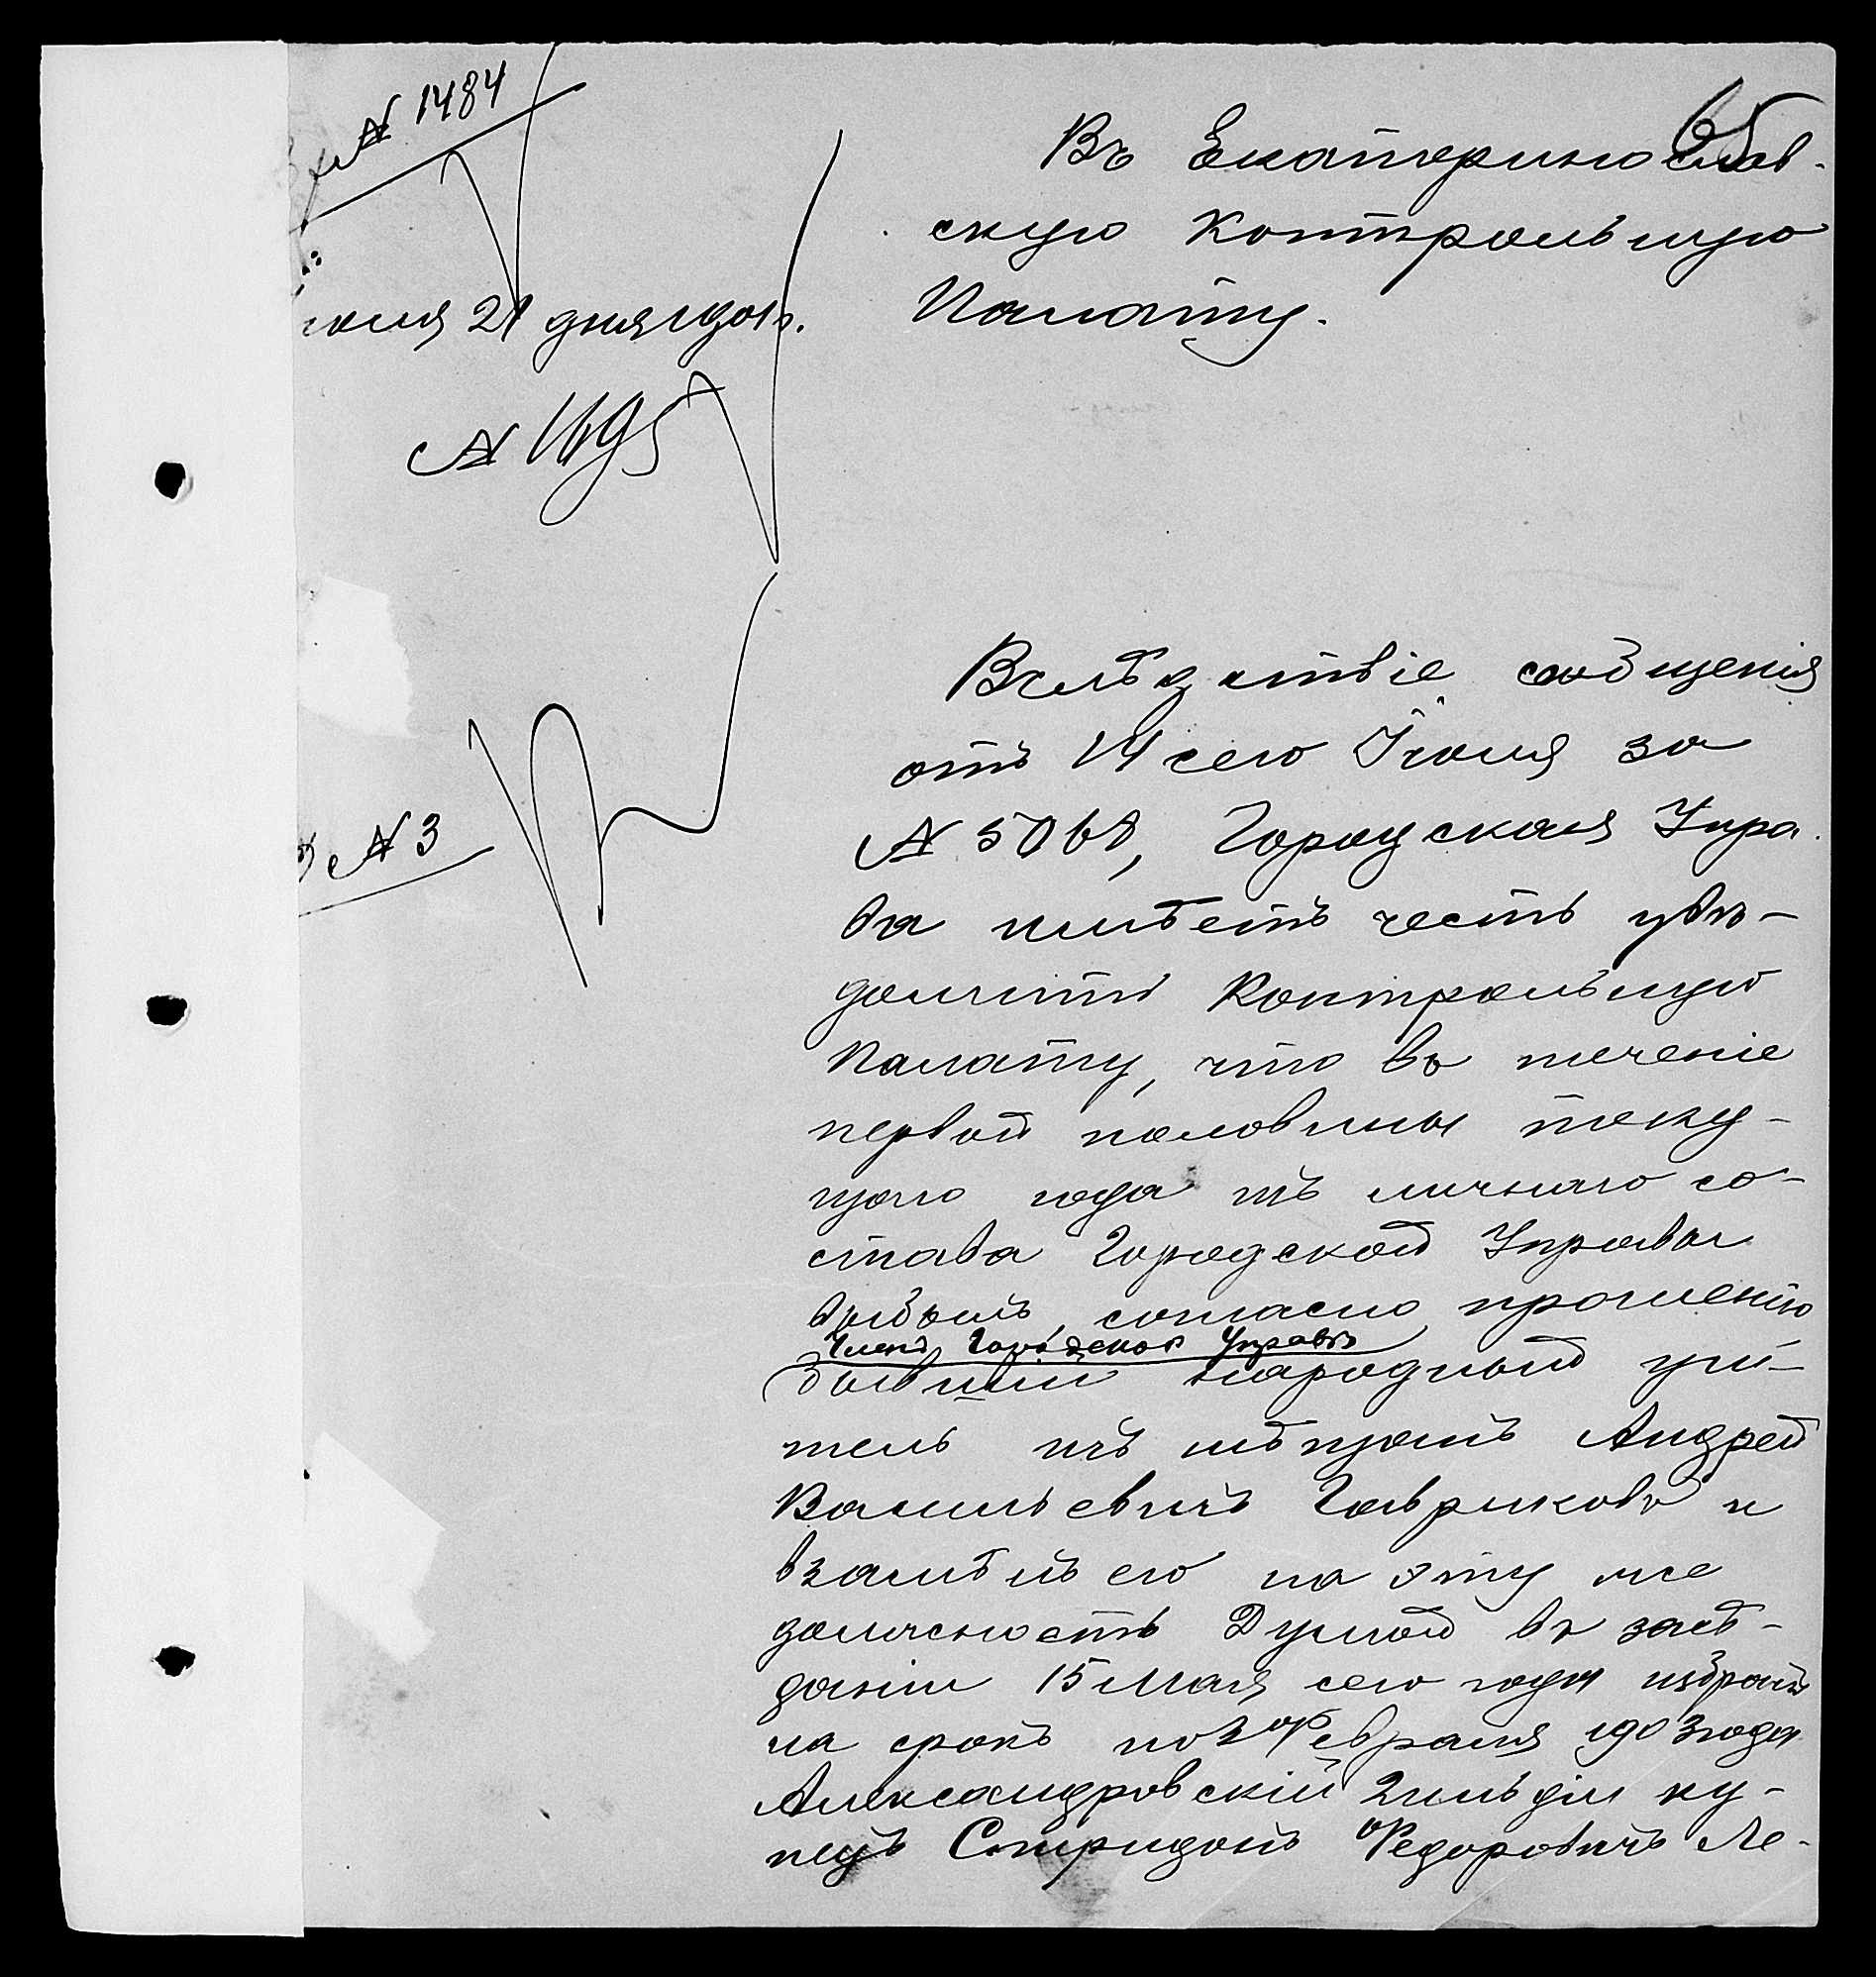 № 1484
65
Въ Екатеринослав-
скую Контрольную
Палату.
21 дня 1901 г.
№ 1695
Вслѣдствіе сообщенія
отъ 14 сего Іюня за
№ 5068, Городская Упра
ва имѣетъ честь увѣ-
домить Контрольную
Палату, что въ теченіе
первой половины теку-
щаго года изъ личнаго со-
става Городской Управы
выбылъ, согласно прошенію
Членъ Городской Управы
бывшій народный учи-
тель изъ мѣщанъ Андрей
Васильевичъ Гавриковъ и
взамѣнъ его на эту же
должность Думой въ засѣ-
даніи 15 Мая сего года избранъ
на срокъ по Февраля 1903 года
Александровскій 2 гильдіи ку-
пецъ Спиридонъ Федоровичъ Ле-
№ 3